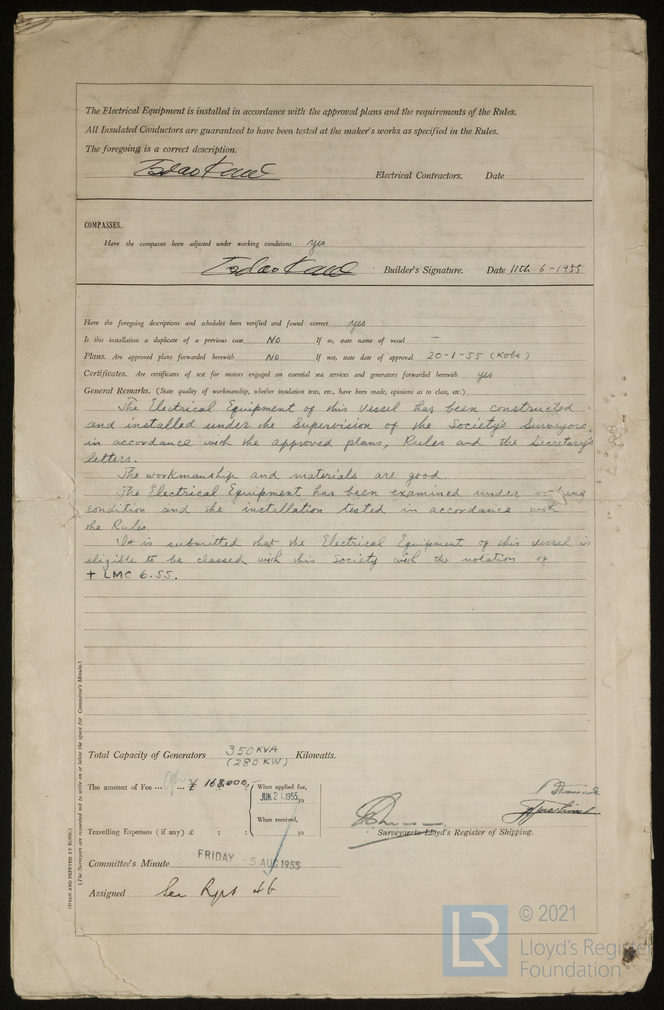 The Electrical Equipment is installed in accordance with the approved plans and the requirements of the Rules.
All Insulated Conductors are guaranteed to have been tested at the maker's works as specified in the Rules.
The foregoing is a correct description.
Electrical Contractors. Date
COMPASSES.
Have the compasses been adjusted under working conditions yes
Builder's Signature. Date 11th 6-1955
Have the foregoing descriptions and schedules been verified and found correct yes
Is this installation a duplicate of a previous case No If so, state name of vessel –
Plans. Are approved plans forwarded herewith No If not, state date of approval 20-1-55 (Kobe)
Certificates. Are certificates of test for motors engaged on essential sea services and generators forwarded herewith yes
General Remarks. (State quality of workmanship, whether insulation tests, etc., have been made, opinions as to class, etc.)
The Electrical Equipment of this vessel has been constructed
and installed under the Supervision of the Society's Surveyors,
in accordance with the approved plans, Rules and the Secretary's
letters.
The workmanship and materials are good.
The Electrical Equipment has been examined under working
condition and the installation tested in accordance with
the Rules.
It is submitted that the Electrical Equipment of this vessel is
eligible to be classed with this Society with the notation of
+ LMC 6.55.
Total Capacity of Generators 350 KVA (280 KW) Kilowatts.
The amount of Fee ... ¥ 168,000,-
When applied for,
JUN. 21. 1955 19
When received,
Travelling Expenses (if any) £ : : 19
Surveyor to Lloyd's Register of Shipping.
Committee's Minute FRIDAY - 5 AUG 1955
Assigned See Rpt 4b
(MADE AND PRINTED AT KOBE.)
(The Surveyors are requested not to write on or below the space for Committee's Minute.)
LR
© 2021
Lloyd's Register
Foundation